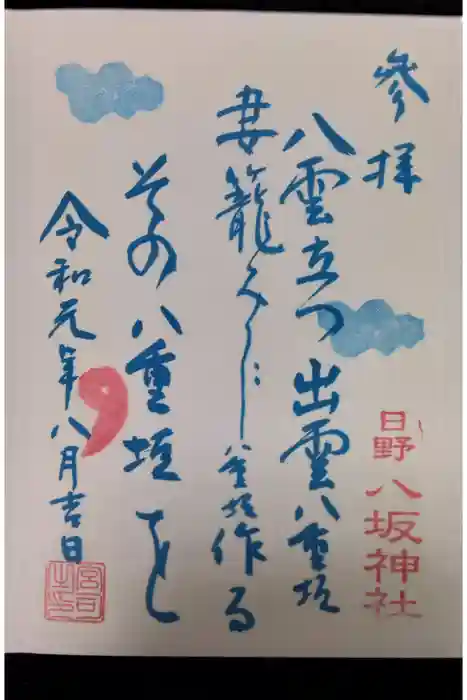 参拝
日野
八坂神社
八雲立つ出雲八重垣
妻籠みに八重垣作る
その八重垣を
令和元年八月吉日
宮司之印